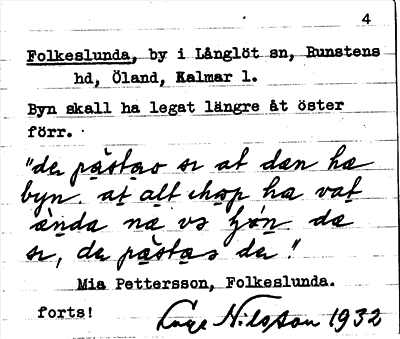 4
Folkeslunda, by i Långlöt sn, Runstens
hd, Öland, Kalmar l.
Byn skall ha legat längre åt öster
förr.
"de påstas sı at dæn hæ
byn at alt ihop hæ vaṭ
ænda næ vs
sı, de påstas de!"
Mia Pettersson, Folkeslunda.
forts!
Nilsson 1932